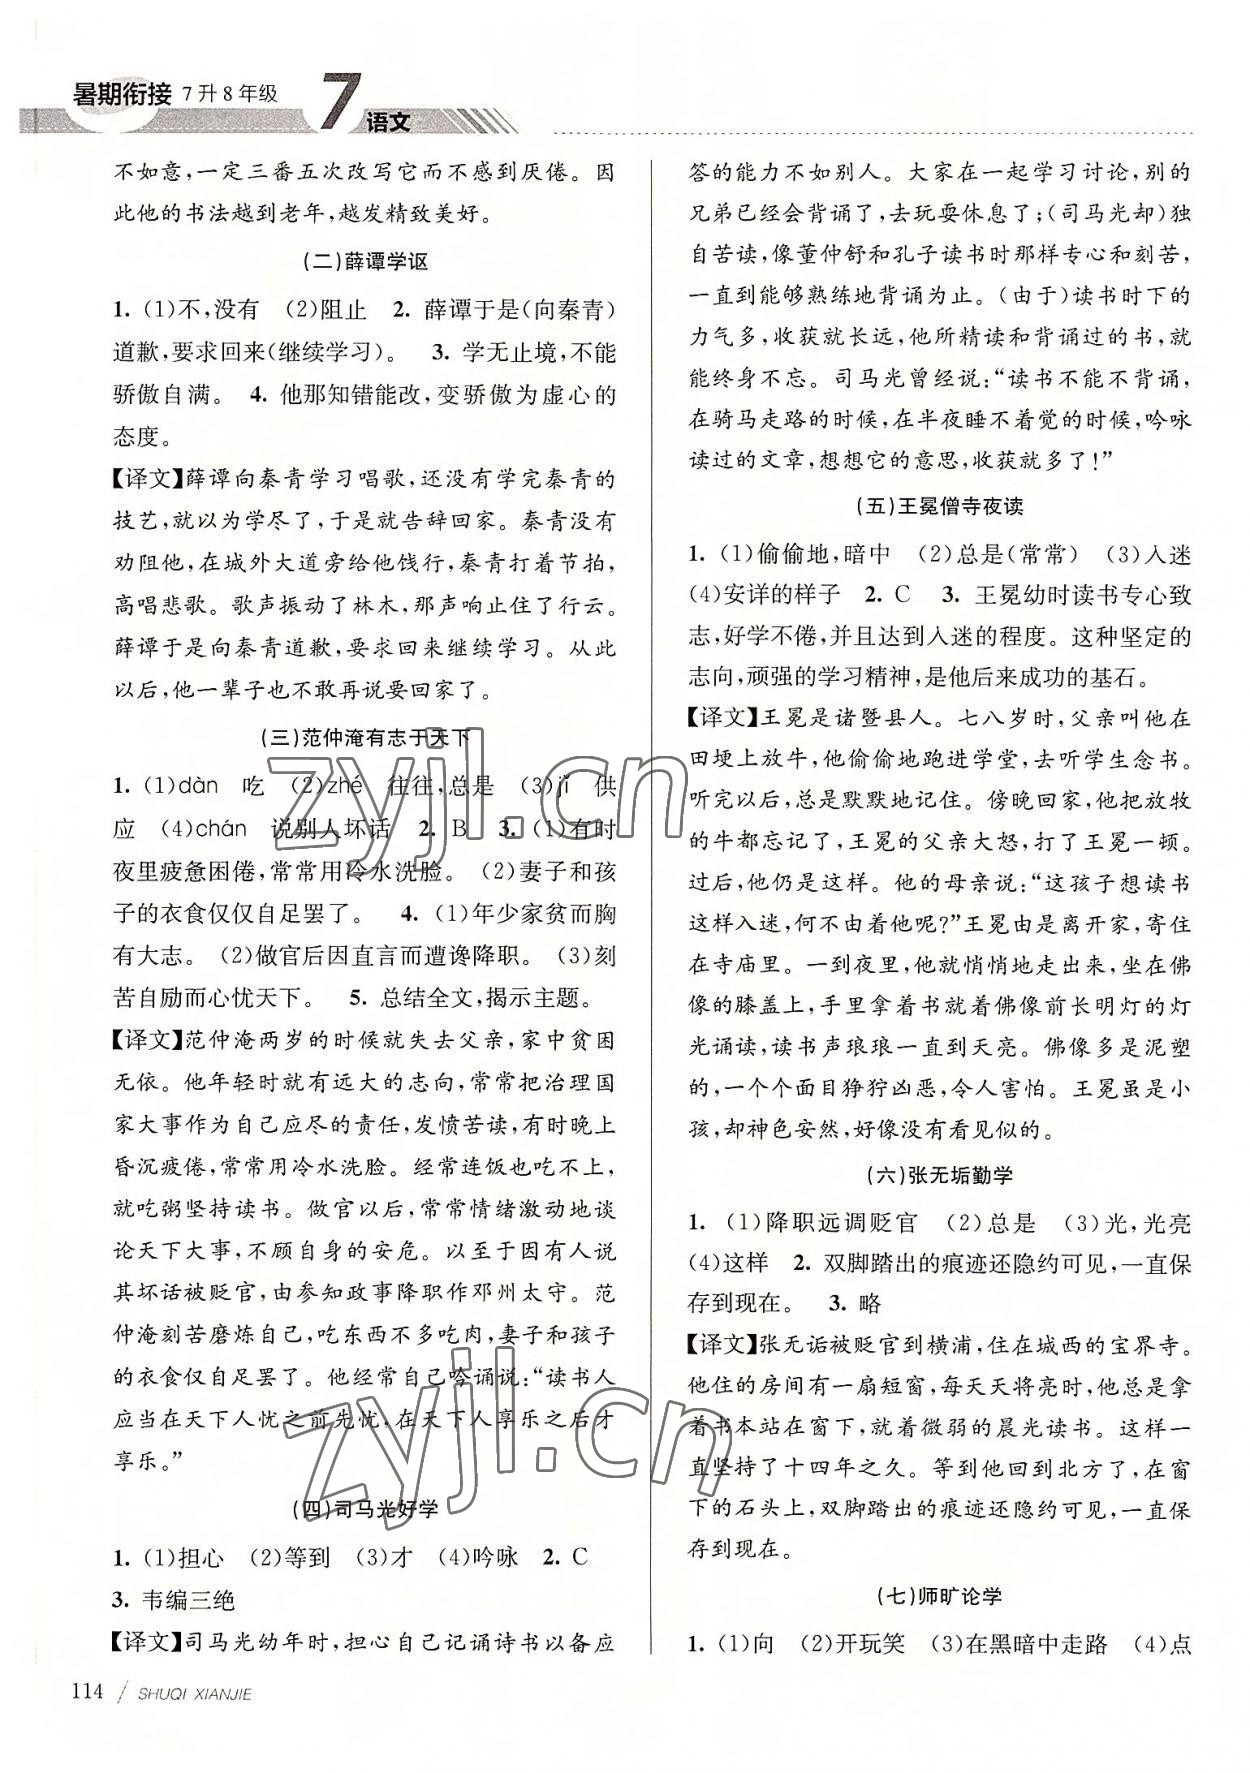 暑期衔接 7升8年级 7 语文
不如意,一定三番五次改写它而不感到厌倦。因
此他的书法越到老年,越发精致美好。
(二)薛谭学讴
1. (1)不,没有 (2)阻止 2. 薛谭于是(向秦青)
道歉,要求回来(继续学习)。 3. 学无止境,不能
骄傲自满。 4. 他那知错能改,变骄傲为虚心的
态度。
【译文】薛谭向秦青学习唱歌,还没有学完秦青的
技艺,就以为学尽了,于是就告辞回家。秦青没有
劝阻他,在城外大道旁给他饯行,秦青打着节拍,
高唱悲歌。歌声振动了林木,那声响止住了行云。
薛谭于是向秦青道歉,要求回来继续学习。从此
以后,他一辈子也不敢再说要回家了。
(三)范仲淹有志于天下
1. (1)dàn 吃 (2)zhé 往往,总是 (3)jǐ 供
应 (4)chán 说别人坏话 2. B 3. (1)有时
夜里疲惫困倦,常常用冷水洗脸。 (2)妻子和孩
子的衣食仅仅自足罢了。 4. (1)年少家贫而胸
有大志。 (2)做官后因直言而遭谗降职。 (3)刻
苦自励而心忧天下。 5. 总结全文,揭示主题。
【译文】范仲淹两岁的时候就失去父亲,家中贫困
无依。他年轻时就有远大的志向,常常把治理国
家大事作为自己应尽的责任,发愤苦读,有时晚上
昏沉疲倦,常常用冷水洗脸。经常连饭也吃不上,
就吃粥坚持读书。做官以后,常常情绪激动地谈
论天下大事,不顾自身的安危。以至于因有人说
其坏话被贬官,由参知政事降职作邓州太守。范
仲淹刻苦磨炼自己,吃东西不多吃肉,妻子和孩子
的衣食仅自足罢了。他经常自己吟诵说:“读书人
应当在天下人忧之前先忧,在天下人享乐之后才
享乐。”
(四)司马光好学
1. (1)担心 (2)等到 (3)才 (4)吟咏 2. C
3. 韦编三绝
【译文】司马光幼年时,担心自己记诵诗书以备应
答的能力不如别人。大家在一起学习讨论,别的
兄弟已经会背诵了,去玩耍休息了;(司马光却)独
自苦读,像董仲舒和孔子读书时那样专心和刻苦,
一直到能够熟练地背诵为止。(由于)读书时下的
力气多,收获就长远,他所精读和背诵过的书,就
能终身不忘。司马光曾经说:“读书不能不背诵,
在骑马走路的时候,在半夜睡不着觉的时候,吟咏
读过的文章,想想它的意思,收获就多了!”
(五)王冕僧寺夜读
1. (1)偷偷地,暗中 (2)总是(常常) (3)入迷
(4)安详的样子 2. C 3. 王冕幼时读书专心致
志,好学不倦,并且达到入迷的程度。这种坚定的
志向,顽强的学习精神,是他后来成功的基石。
【译文】王冕是诸暨县人。七八岁时,父亲叫他在
田埂上放牛,他偷偷地跑进学堂,去听学生念书。
听完以后,总是默默地记住。傍晚回家,他把放牧
的牛都忘记了,王冕的父亲大怒,打了王冕一顿。
过后,他仍是这样。他的母亲说:“这孩子想读书
这样入迷,何不由着他呢?”王冕由是离开家,寄住
在寺庙里。一到夜里,他就悄悄地走出来,坐在佛
像的膝盖上,手里拿着书就着佛像前长明灯的灯
光诵读,读书声琅琅一直到天亮。佛像多是泥塑
的,一个个面目狰狞凶恶,令人害怕。王冕虽是小
孩,却神色安然,好像没有看见似的。
(六)张无垢勤学
1. (1)降职远调贬官 (2)总是 (3)光,光亮
(4)这样 2. 双脚踏出的痕迹还隐约可见,一直保
存到现在。 3. 略
【译文】张无诟被贬官到横浦,住在城西的宝界寺。
他住的房间有一扇短窗,每天天将亮时,他总是拿
着书本站在窗下,就着微弱的晨光读书。这样一
直坚持了十四年之久。等到他回到北方了,在窗
下的石头上,双脚踏出的痕迹还隐约可见,一直保
存到现在。
(七)师旷论学
1. (1)向 (2)开玩笑 (3)在黑暗中走路 (4)点
114 / SHUQI XIANJIE
zyjl.cn
zyjl.cn